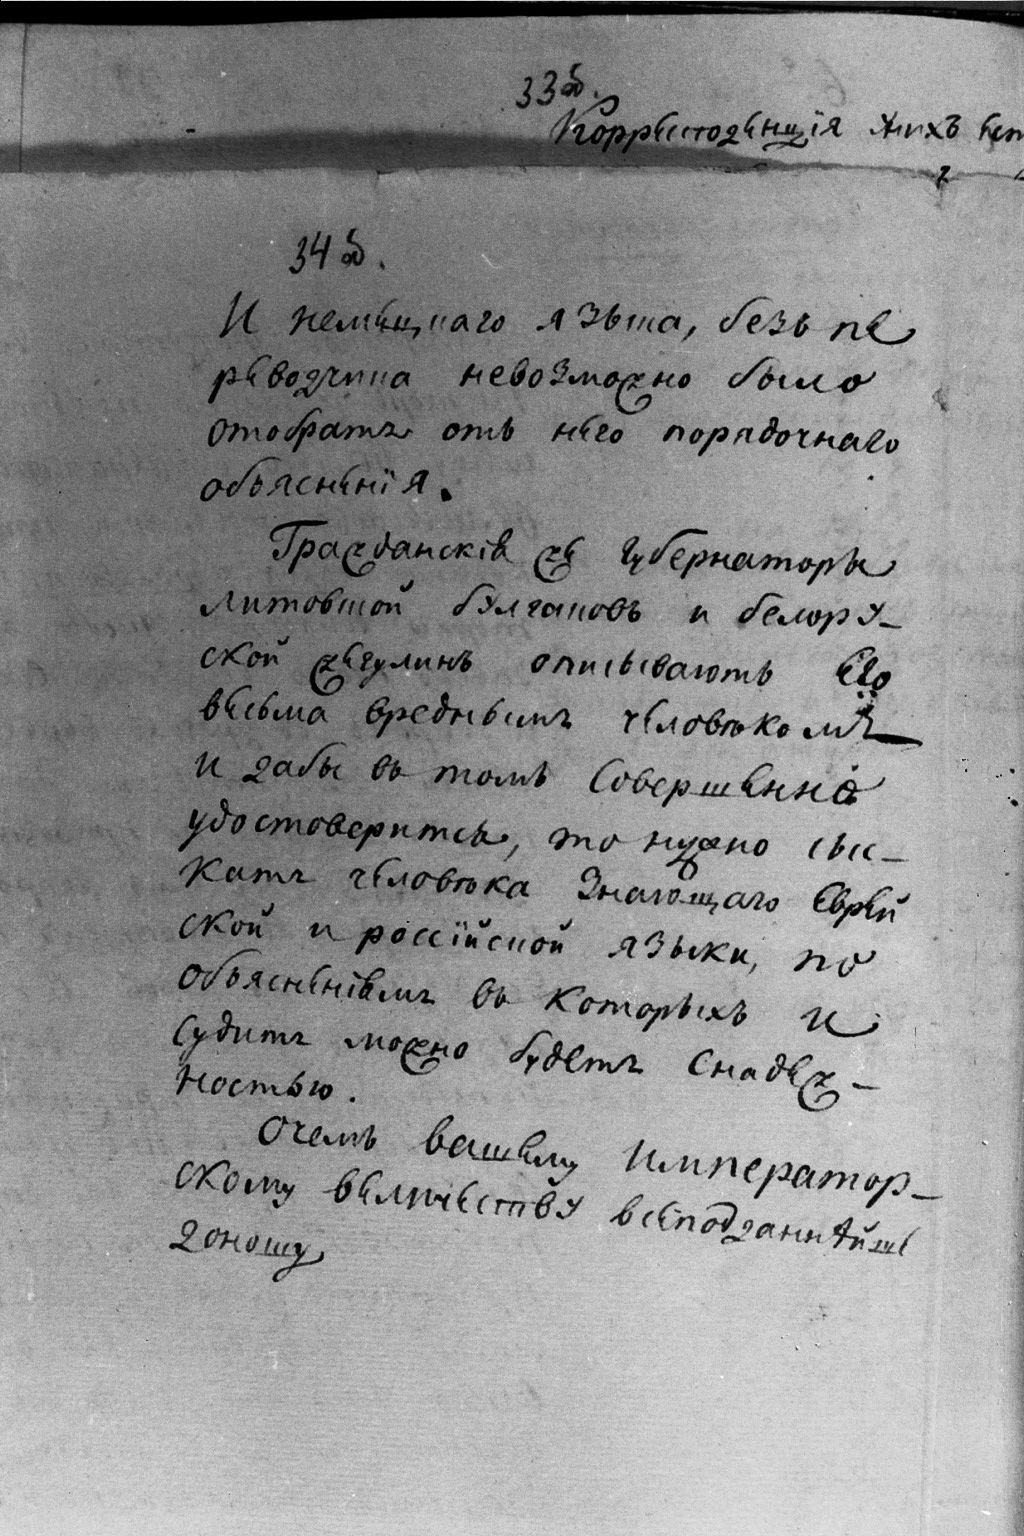 33 б.
Корреспозенція ихъ
34 б.
И немецкаго языка, безъ пе
реводчика невозможно было
отобрать отъ него порядочнаго
объясненія.
Гражданскіе же губернаторы
литовской булгаковъ и белору-
ской жегулинъ описываютъ его
весьма вреднымъ человѣкомъ
и дабы въ томъ совершенно
удостоверится, то нужно сыс-
кать человѣка знающаго еврей
ской и россійской языки, по
объясненіемъ въ которыхъ и
судить можно будетъ снадеж-
ностью.
Очемъ вашему император-
скому величеству всеподданнѣйше
доношу